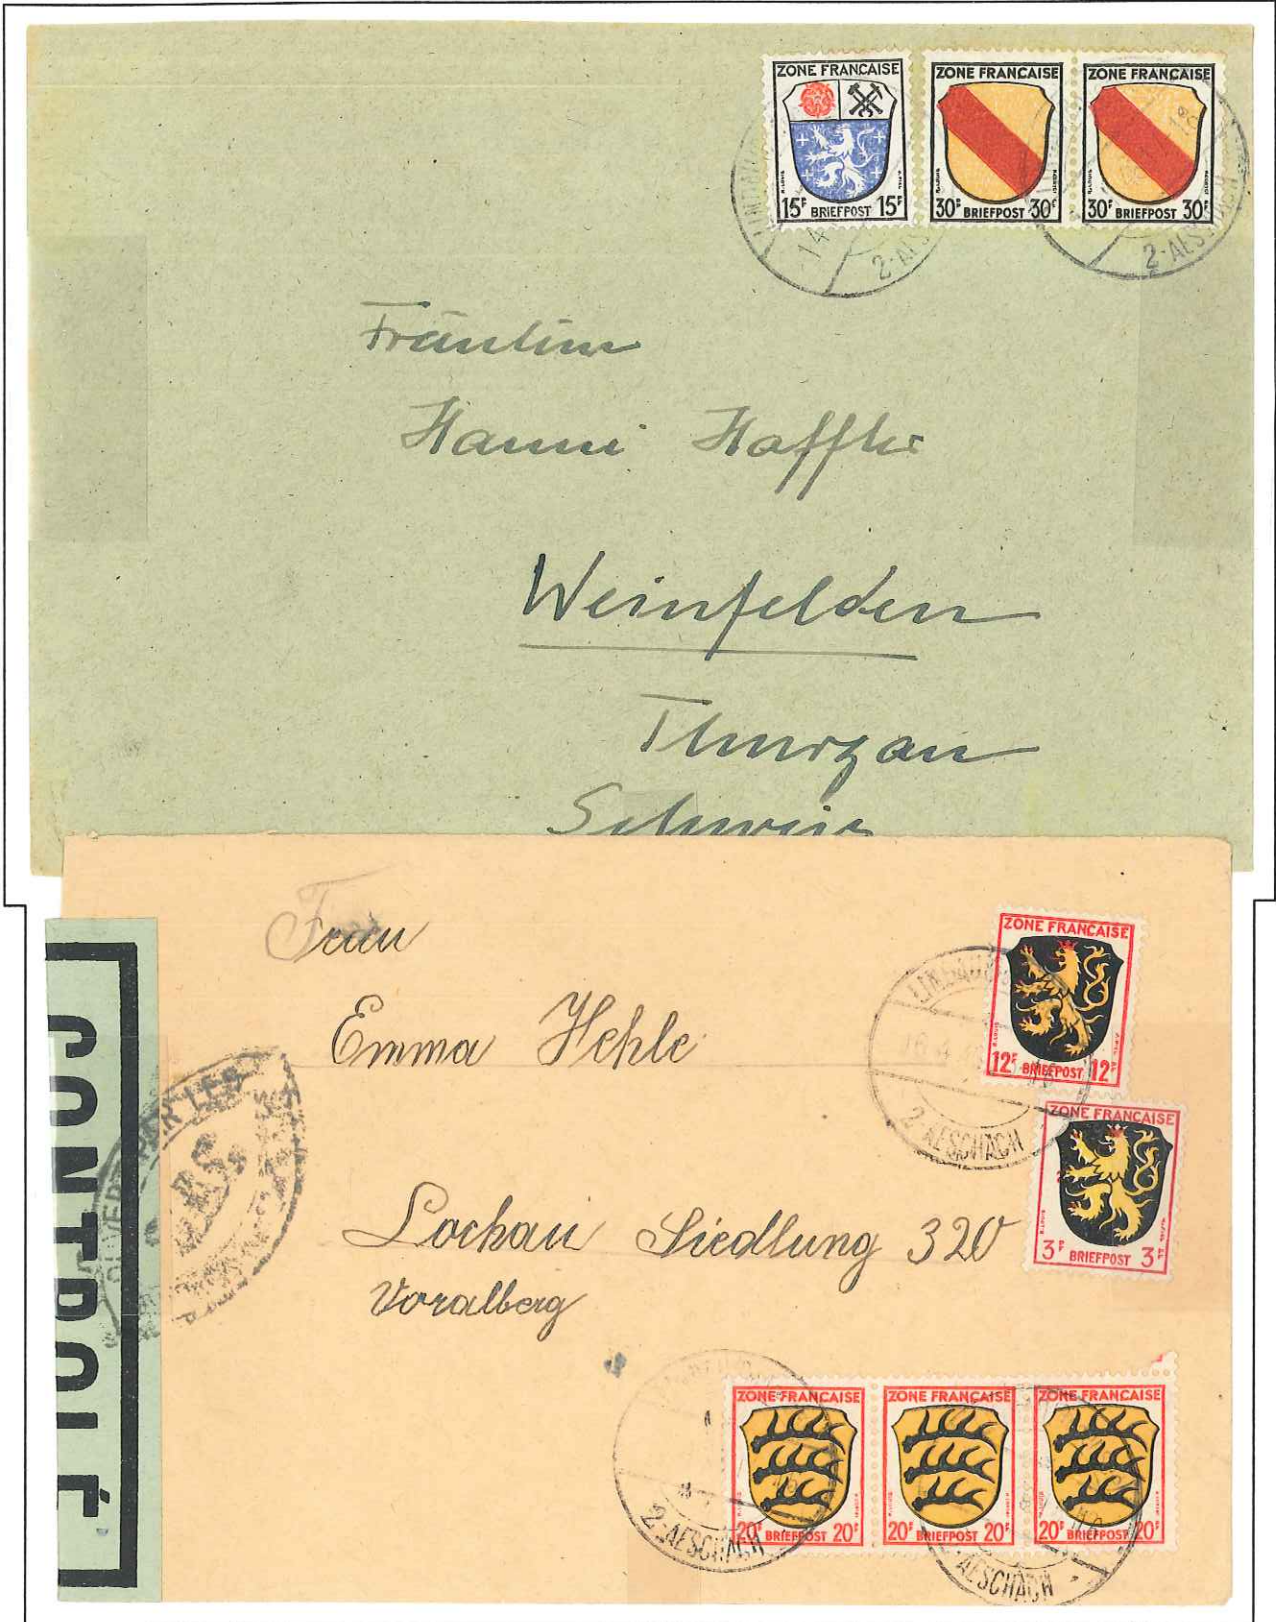 ZONE FRANÇAISE
15F BRIEFPOST 15F
ZONE FRANÇAISE
30F BRIEFPOST 30F
ZONE FRANÇAISE
30F BRIEFPOST 30F
2-AES
2-AES
Fräulein
Hanni Haffter
Weinfelden
Thurgau
Schweiz
Frau
Emma Hehle
Lochau Siedlung 320
Voralberg
ZONE FRANÇAISE
12F BRIEFPOST 12F
2-AESCHACH
ZONE FRANÇAISE
3F BRIEFPOST 3F
CONTROLÉ
ZONE FRANÇAISE
20F BRIEFPOST 20F
ZONE FRANÇAISE
20F BRIEFPOST 20F
ZONE FRANÇAISE
20F BRIEFPOST 20F
2-AESCHACH
AESCHACH